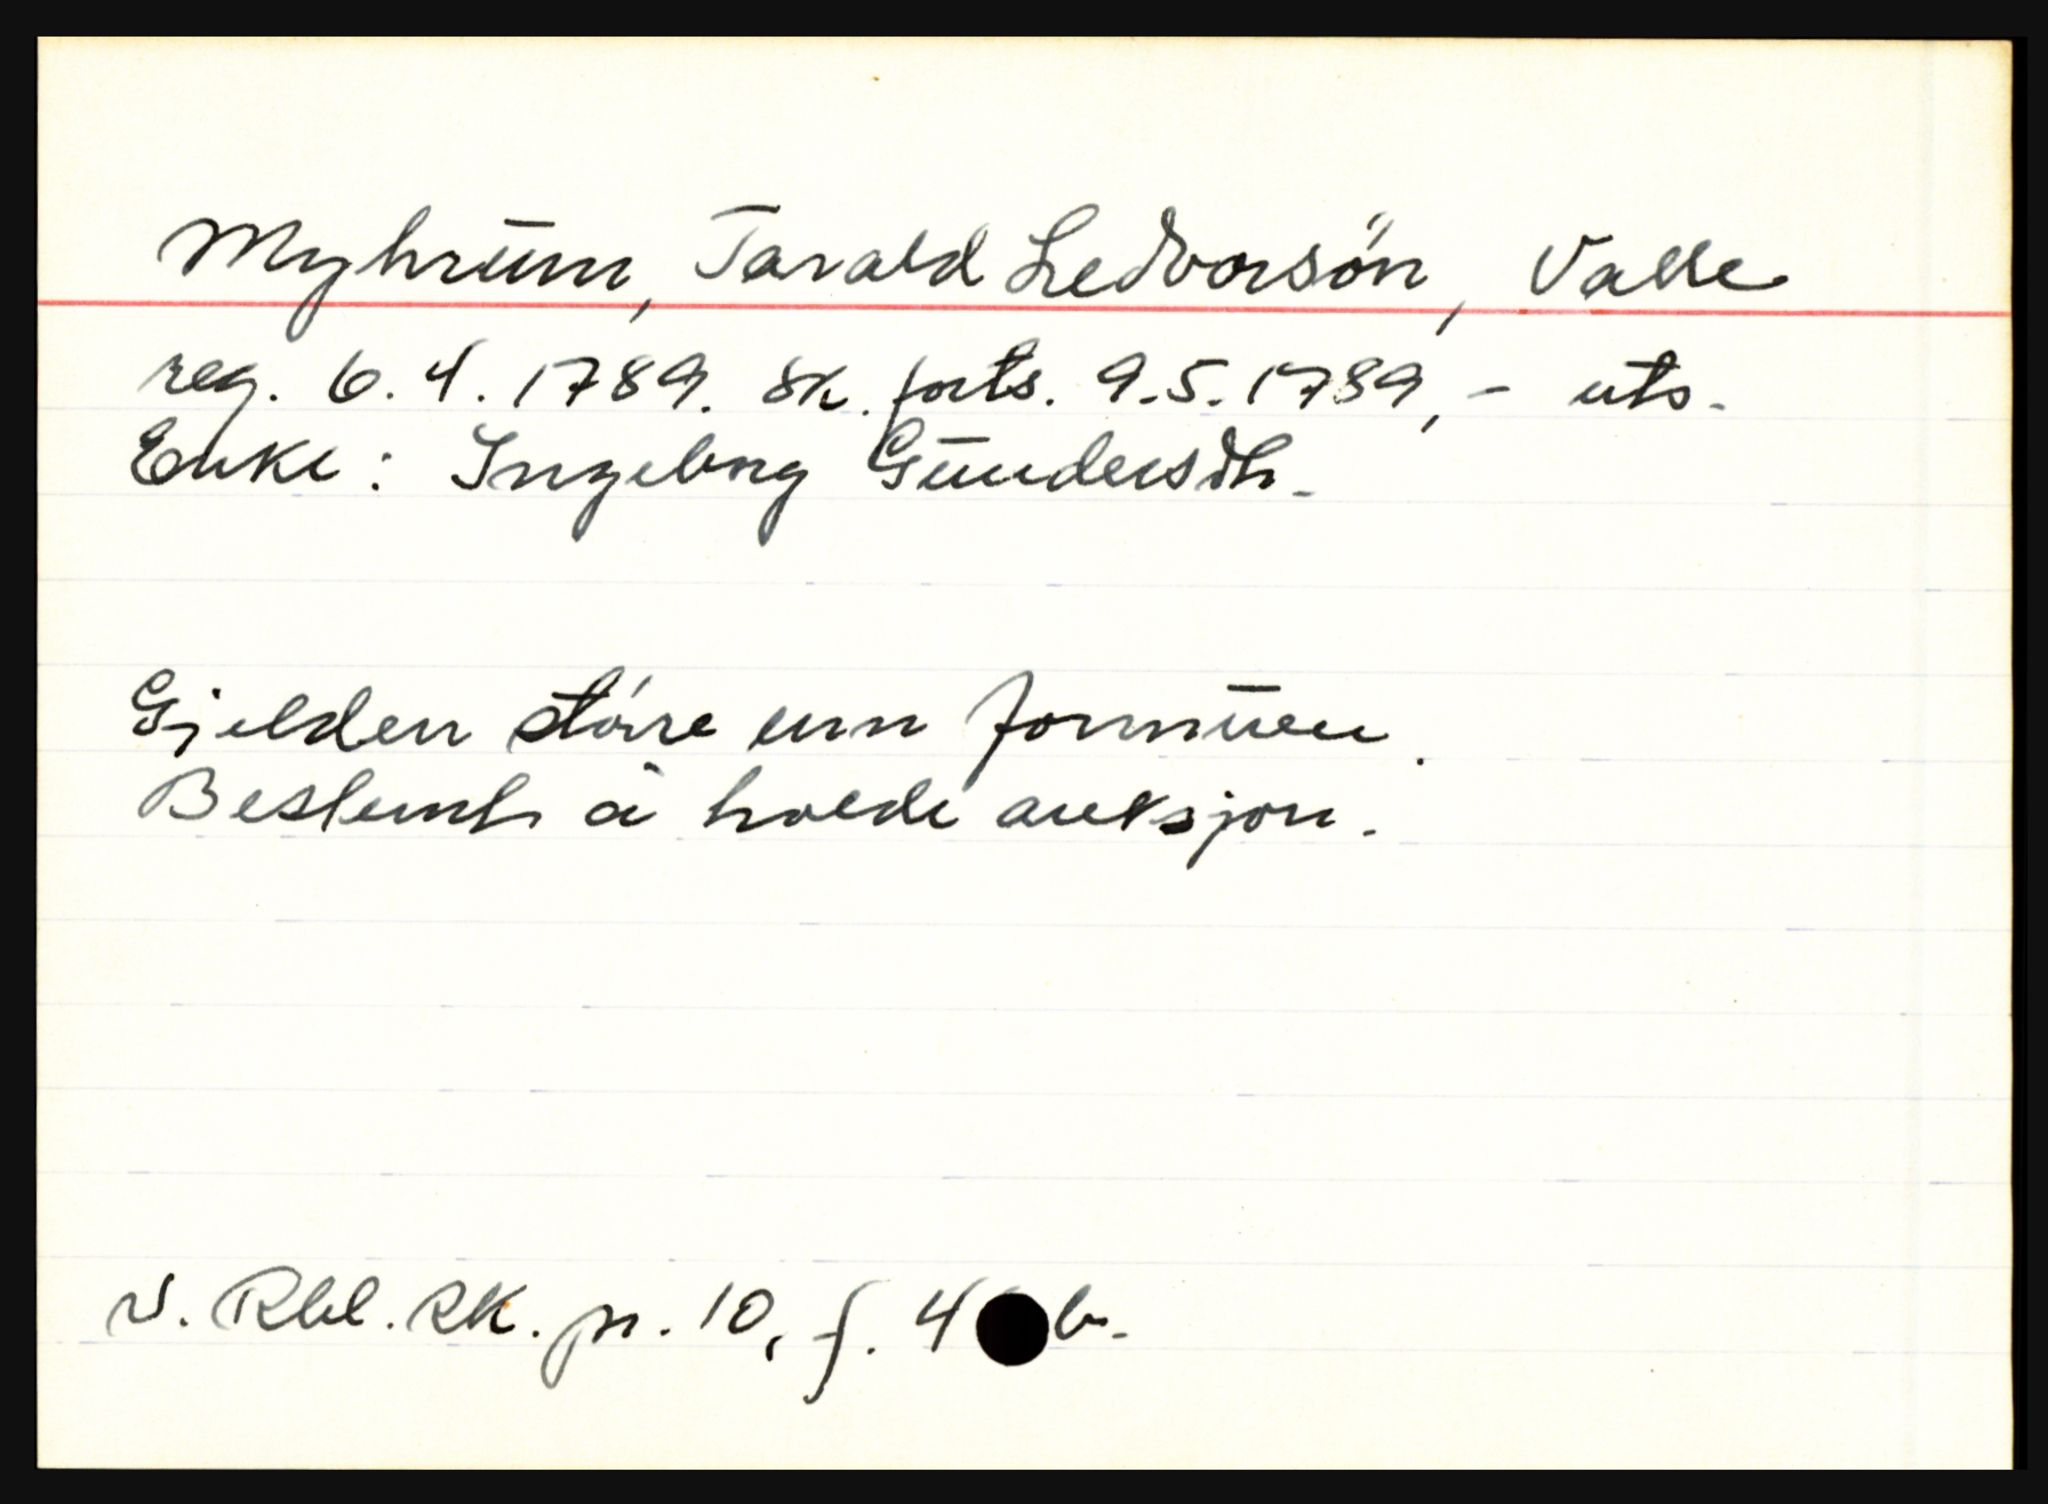 Myhrum, Tarald Ledvorsön, Valle
reg. 6.4.1789. sk. forts. 9.5.1789, - uts.
Enke: Ingeborg Gundersdtr.
Gjelden större enn formuen.
Bestemt å holde auksjon.
v. Rbl. RK. pr. 10, f. 4 b.